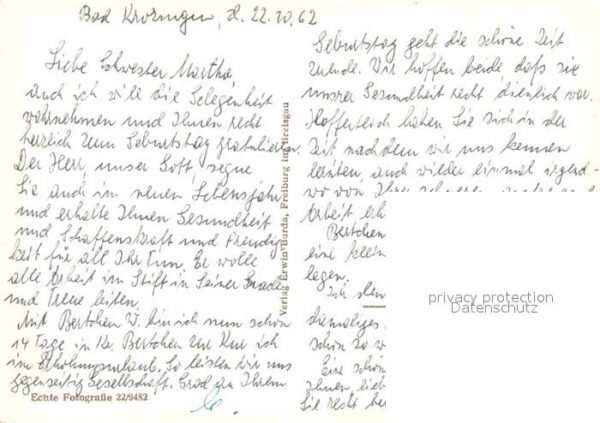 Bad Krozingen, d. 22.10.62
Liebe Schwester Martha,
auch ich will die Gelegenheit
wahrnehmen und Ihnen recht
herzlich zum Geburtstag gratulieren.
Der Herr, unser Gott segne
Sie auch im neuen Lebensjahr
und erhalte Ihnen Gesundheit
und Schaffenskraft und Freudig-
keit für all Ihr Tun. Er wolle
alle Arbeit im Stift in Seiner Gnade
und Treue leiten.
Mit Bertchen W. bin ich nun schon
14 Tage in Kr. Bertchen zur Kur ich
im Erholungsurlaub. So leisten wir uns
gegenseitig Gesellschaft. Grad an Ihrem
Echte Fotografie 22/9482
Verlag Erwin Burda, Freiburg im Breisgau
Geburtstag geht die schöne Zeit
zu Ende. Wir hoffen beide daß sie
unsrer Gesundheit recht dienlich war.
Hoffentlich haben Sie sich in der
Zeit nachdem wir uns kennen
lernten, auch wieder einmal irgend-
wo von Ihrer
Arbeit
Bertchen
eine klein
legen.
Ich den
damaliges
schon so
Eine schön
Ihnen, lieb
Sie recht
privacy protection
Datenschutz